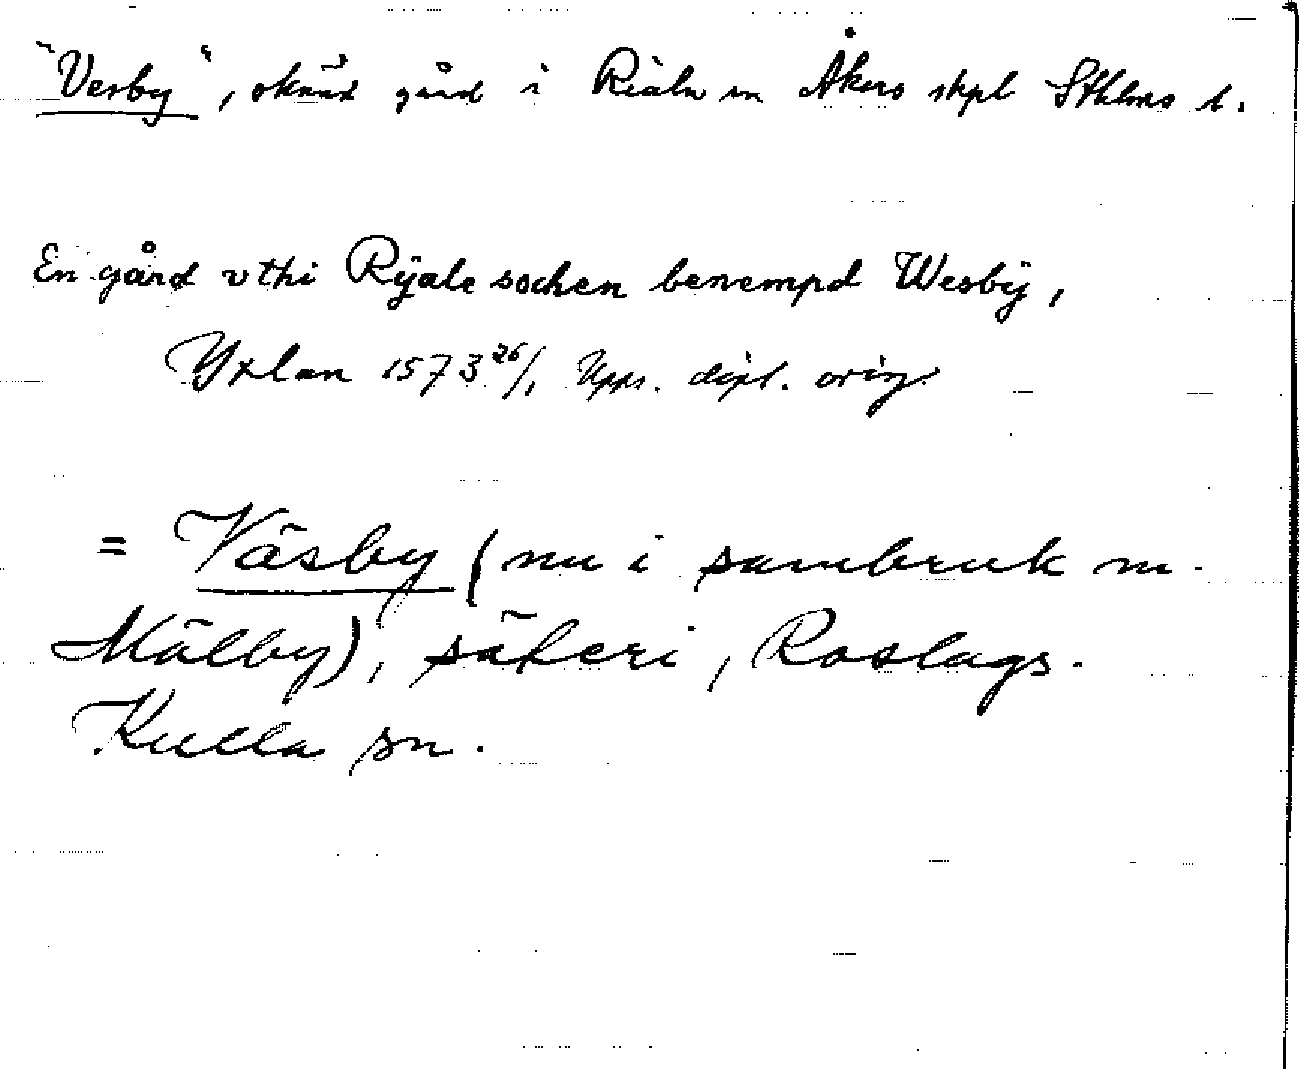 "Vesby", okänd gård i Riala sn Åkers skpl Sthlms l.
En gård vthi Rÿale sochen benempd Wesbÿ,
Yxlan 1573 26/1 Upps. dipl. orig.
= Väsby (nu i sambruk m.
Mälby), säteri, Roslags-
Kulla sn.